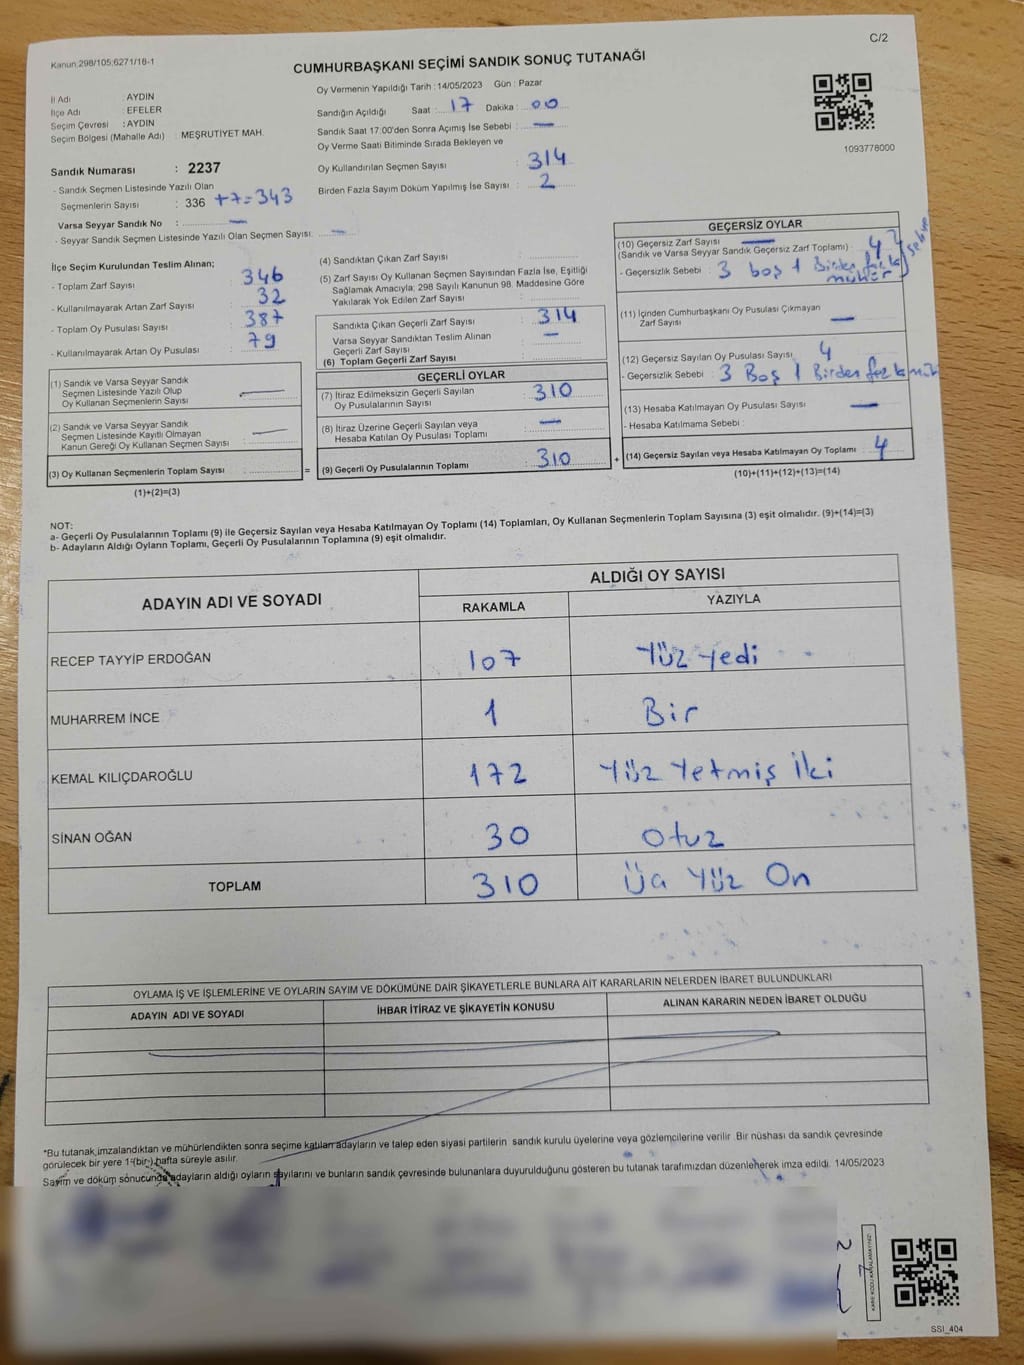 C/2
Kanun:298/105;6271/18-1
CUMHURBAŞKANI SEÇİMİ SANDIK SONUÇ TUTANAĞI
İl Adı : AYDIN
İlçe Adı : EFELER
Seçim Çevresi : AYDIN
Seçim Bölgesi (Mahalle Adı) : MEŞRUTİYET MAH.
Sandık Numarası : 2237
- Sandık Seçmen Listesinde Yazılı Olan
Seçmenlerin Sayısı : 336 +7=343
Varsa Seyyar Sandık No : —
- Seyyar Sandık Seçmen Listesinde Yazılı Olan Seçmen Sayısı: —
Oy Vermenin Yapıldığı Tarih : 14/05/2023 Gün : Pazar
Sandığın Açıldığı Saat : 17 Dakika : 00
Sandık Saat 17:00'den Sonra Açımış İse Sebebi : —
Oy Verme Saati Bitiminde Sırada Bekleyen ve
Oy Kullandırılan Seçmen Sayısı : 314
Birden Fazla Sayım Döküm Yapılmış İse Sayısı : 2
1093778000
İlçe Seçim Kurulundan Teslim Alınan;
- Toplam Zarf Sayısı : 346
- Kullanılmayarak Artan Zarf Sayısı : 32
- Toplam Oy Pusulası Sayısı : 387
- Kullanılmayarak Artan Oy Pusulası : 79
(1) Sandık ve Varsa Seyyar Sandık
Seçmen Listesinde Yazılı Olup
Oy Kullanan Seçmenlerin Sayısı : —
(2) Sandık ve Varsa Seyyar Sandık
Seçmen Listesinde Kayıtlı Olmayan
Kanun Gereği Oy Kullanan Seçmen Sayısı : —
(3) Oy Kullanan Seçmenlerin Toplam Sayısı :
(1)+(2)=(3)
(4) Sandıktan Çıkan Zarf Sayısı :
(5) Zarf Sayısı Oy Kullanan Seçmen Sayısından Fazla İse, Eşitliği
Sağlamak Amacıyla; 298 Sayılı Kanunun 98. Maddesine Göre
Yakılarak Yok Edilen Zarf Sayısı :
Sandıkta Çıkan Geçerli Zarf Sayısı : 314
Varsa Seyyar Sandıktan Teslim Alınan
Geçerli Zarf Sayısı : —
(6) Toplam Geçerli Zarf Sayısı :
GEÇERLİ OYLAR
(7) İtiraz Edilmeksizin Geçerli Sayılan
Oy Pusulalarının Sayısı : 310
(8) İtiraz Üzerine Geçerli Sayılan veya
Hesaba Katılan Oy Pusulası Toplamı : —
= (9) Geçerli Oy Pusulalarının Toplamı : 310
GEÇERSİZ OYLAR
(10) Geçersiz Zarf Sayısı
(Sandık ve Varsa Seyyar Sandık Geçersiz Zarf Toplamı) : 4
- Geçersizlik Sebebi : 3 boş 1 Birden fazla
mühür
(11) İçinden Cumhurbaşkanı Oy Pusulası Çıkmayan
Zarf Sayısı : —
(12) Geçersiz Sayılan Oy Pusulası Sayısı : 4
- Geçersizlik Sebebi : 3 Boş 1 Birden fazla müh
(13) Hesaba Katılmayan Oy Pusulası Sayısı : —
- Hesaba Katılmama Sebebi :
+ (14) Geçersiz Sayılan veya Hesaba Katılmayan Oy Toplamı : 4
(10)+(11)+(12)+(13)=(14)
NOT:
a- Geçerli Oy Pusulalarının Toplamı (9) ile Geçersiz Sayılan veya Hesaba Katılmayan Oy Toplamı (14) Toplamları, Oy Kullanan Seçmenlerin Toplam Sayısına (3) eşit olmalıdır. (9)+(14)=(3)
b- Adayların Aldığı Oyların Toplamı, Geçerli Oy Pusulalarının Toplamına (9) eşit olmalıdır.
ADAYIN ADI VE SOYADI
ALDIĞI OY SAYISI
RAKAMLA YAZIYLA
RECEP TAYYİP ERDOĞAN 107 Yüz Yedi
MUHARREM İNCE 1 Bir
KEMAL KILIÇDAROĞLU 172 Yüz Yetmiş İki
SİNAN OĞAN 30 Otuz
TOPLAM 310 Üç Yüz On
OYLAMA İŞ VE İŞLEMLERİNE VE OYLARIN SAYIM VE DÖKÜMÜNE DAİR ŞİKAYETLERLE BUNLARA AİT KARARLARIN NELERDEN İBARET BULUNDUKLARI
ADAYIN ADI VE SOYADI İHBAR İTİRAZ VE ŞİKAYETİN KONUSU ALINAN KARARIN NEDEN İBARET OLDUĞU
*Bu tutanak,imzalandıktan ve mühürlendikten sonra seçime katılan adayların ve talep eden siyasi partilerin sandık kurulu üyelerine veya gözlemcilerine verilir .Bir nüshası da sandık çevresinde
görülecek bir yere 1-(bir-) hafta süreyle asılır.
Sayım ve döküm sonucunda adayların aldığı oyların sayılarını ve bunların sandık çevresinde bulunanlara duyurulduğunu gösteren bu tutanak tarafımızdan düzenlenerek imza edildi. 14/05/2023
KARE KODU KARALAMAYINIZ!
SSI_404